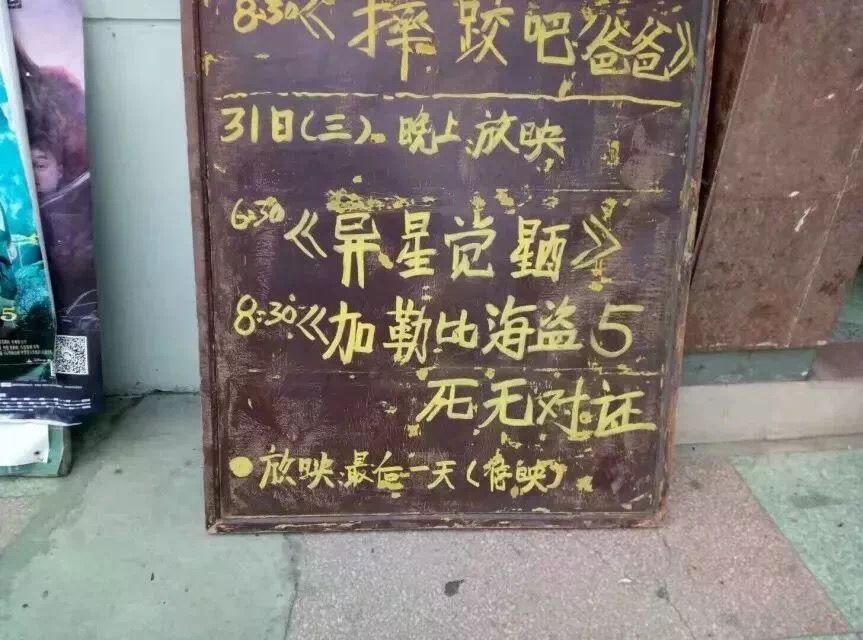 8:30《摔跤吧爸爸》
31日(三)晚上放映
6:30《异星觉醒》
8:30《加勒比海盗5
死无对证
●放映最后一天(停映)
5